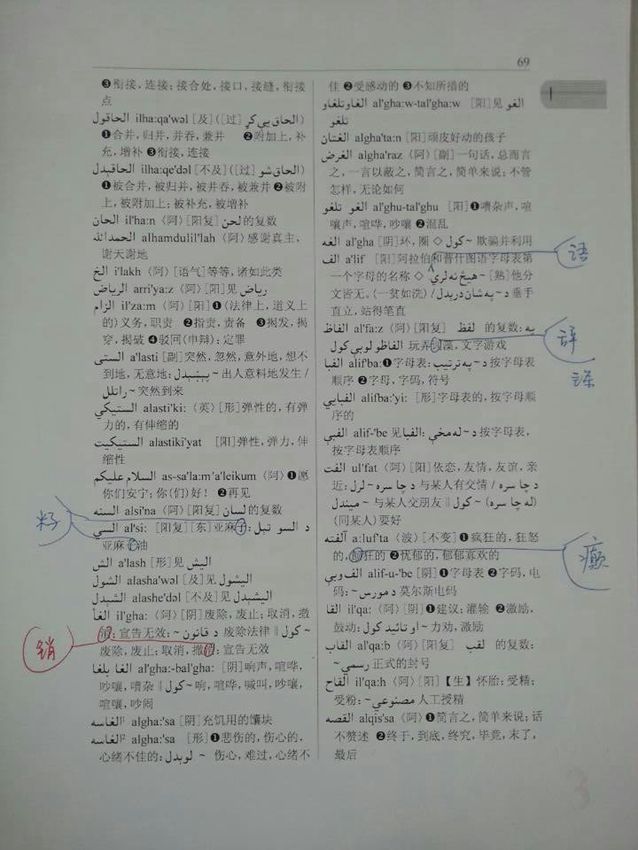 69
❸衔接, 连接; 接合处, 接口, 接缝, 衔接
点
الحاقول ilha:qa'wəl [及] ([过] الحاق يې کړ)
❶合并, 归并, 并吞, 兼并 ❷附加上, 补
充, 增补 ❸衔接, 连接
الحاقېدل ilha:qe'dəl [不及] ([过] الحاق شو)
❶被合并, 被归并, 被并吞, 被兼并 ❷被附
上, 被附加上; 被补充, 被增补
الحان il'ha:n (阿) [阳复] لحن 的复数
الحمدالله alhamdulil'lah (阿) 感谢真主,
谢天谢地
الخ i'lakh (阿) [语气] 等等, 诸如此类
الرياض arri'ya:z (阿) [阳] 见 رياض
الزام il'za:m (阿) [阳] ❶ (法律上, 道义上
的) 义务, 职责 ❷指责, 责备 ❸揭发, 揭
穿, 揭破 ❹驳回 (申辩); 定罪
الستي a'lasti [副] 突然, 忽然, 意外地, 想不
到地, 无意地: ~ پېښېدل 出人意料地发生 /
~ راتلل 突然到来
الستيکي alasti'ki: (英) [形] 弹性的, 有弹
力的, 有伸缩的
الستيکيت alastiki'yat [阳] 弹性, 弹力, 伸
缩性
السلام عليکم as-sa'la:m'a'leikum (阿) ❶愿
你们安宁; 你(们)好! ❷再见
السنه alsi'na (阿) [阳复] لسان 的复数
السي al'si: [阳复] [东] 亚麻子: د السو تېل
亚麻子油
籽
الش a'lash [形] 见 الېش
الشول alasha'wəl [及] 见 الېشول
الشېدل alashe'dəl [不及] 见 الېشېدل
الغا il'gha: (阿) [阴] 废除, 废止; 取消, 撤
消; 宣告无效: ~ د قانون 废除法律 ‖ ~ کول
废除, 废止; 取消, 撤消; 宣告无效
销
الغا بلغا al'gha:-bal'gha: [阴] 响声, 喧哗,
吵嚷, 嘈杂 ~ کول 响, 喧哗, 喊叫, 吵嚷,
喧嚷, 吵闹
الغاسه¹ algha:'sa [阴] 充饥用的馕块
الغاسه² algha:'sa [形] ❶悲伤的, 伤心的,
心绪不佳的: ~ لوېدل 伤心, 难过, 心绪不
佳 ❷受感动的 ❸不知所措的
الغاوتلغاو al'gha:w-tal'gha:w [阳] 见 الغو
تلغو
الغتان algha'ta:n [阳] 顽皮好动的孩子
الغرض algha'raz (阿) [副] 一句话, 总而言
之, 一言以蔽之, 简言之, 简单来说; 不管
怎样, 无论如何
الغو تلغو al'ghu-tal'ghu [阳] ❶嘈杂声, 喧
嚷声, 喧哗, 吵嚷 ❷混乱
الغه al'gha [阴] 环, 圈 ◇ ~ کول 欺骗并利用
الف a'lif [阳] 阿拉伯和普什图语字母表第
一个字母的名称 ◇ ~ هېڅ نه لري [熟] 他分
文皆无, (一贫如洗) / ~ په شان درېدل 垂手
直立, 站得笔直
语
الفاظ al'fa:z (阿) [阳复] لفظ 的复数: په
الفاظو لوبې کول 玩弄词藻, 文字游戏
辞
الفبا alif'ba: ❶字母表: د ~ په ترتيب 按字母表
顺序 ❷字母, 字码, 符号
الفبايي alifba:'yi: [形] 字母表的, 按字母顺
序的
الفبې alif-'be 见 الفبا: د ~ له مخې 按字母表,
按字母表顺序
الفت ul'fat (阿) [阳] 依恋, 友情, 友谊, 亲
近: د چا سره ~ لرل 与某人有交情 / د چا سره
~ ميندل 与某人交朋友 ‖ ~ کول (له چا سره)
(同某人) 要好
آلفته a:luf'ta (波) [不变] ❶疯狂的, 狂怒
的, 颠狂的 ❷忧郁的, 郁郁寡欢的
癫
الف وبې alif-u-'be [阴] ❶字母表 ❷字码, 电
码: د مورس ~ 莫尔斯电码
القا il'qa: (阿) [阴] ❶建议; 灌输 ❷激励,
鼓动: ~ او تائيد کول 力劝, 激励
القاب al'qa:b (阿) [阳复] لقب 的复数:
~ رسمي 正式的封号
القاح il'qa:h (阿) [阳] 【生】怀胎; 受精;
受粉: ~ مصنوعي 人工授精
القصه alqis'sa (阿) ❶简言之, 简单来说; 话
不赘述 ❷终于, 到底, 终究, 毕竟, 末了,
最后
3